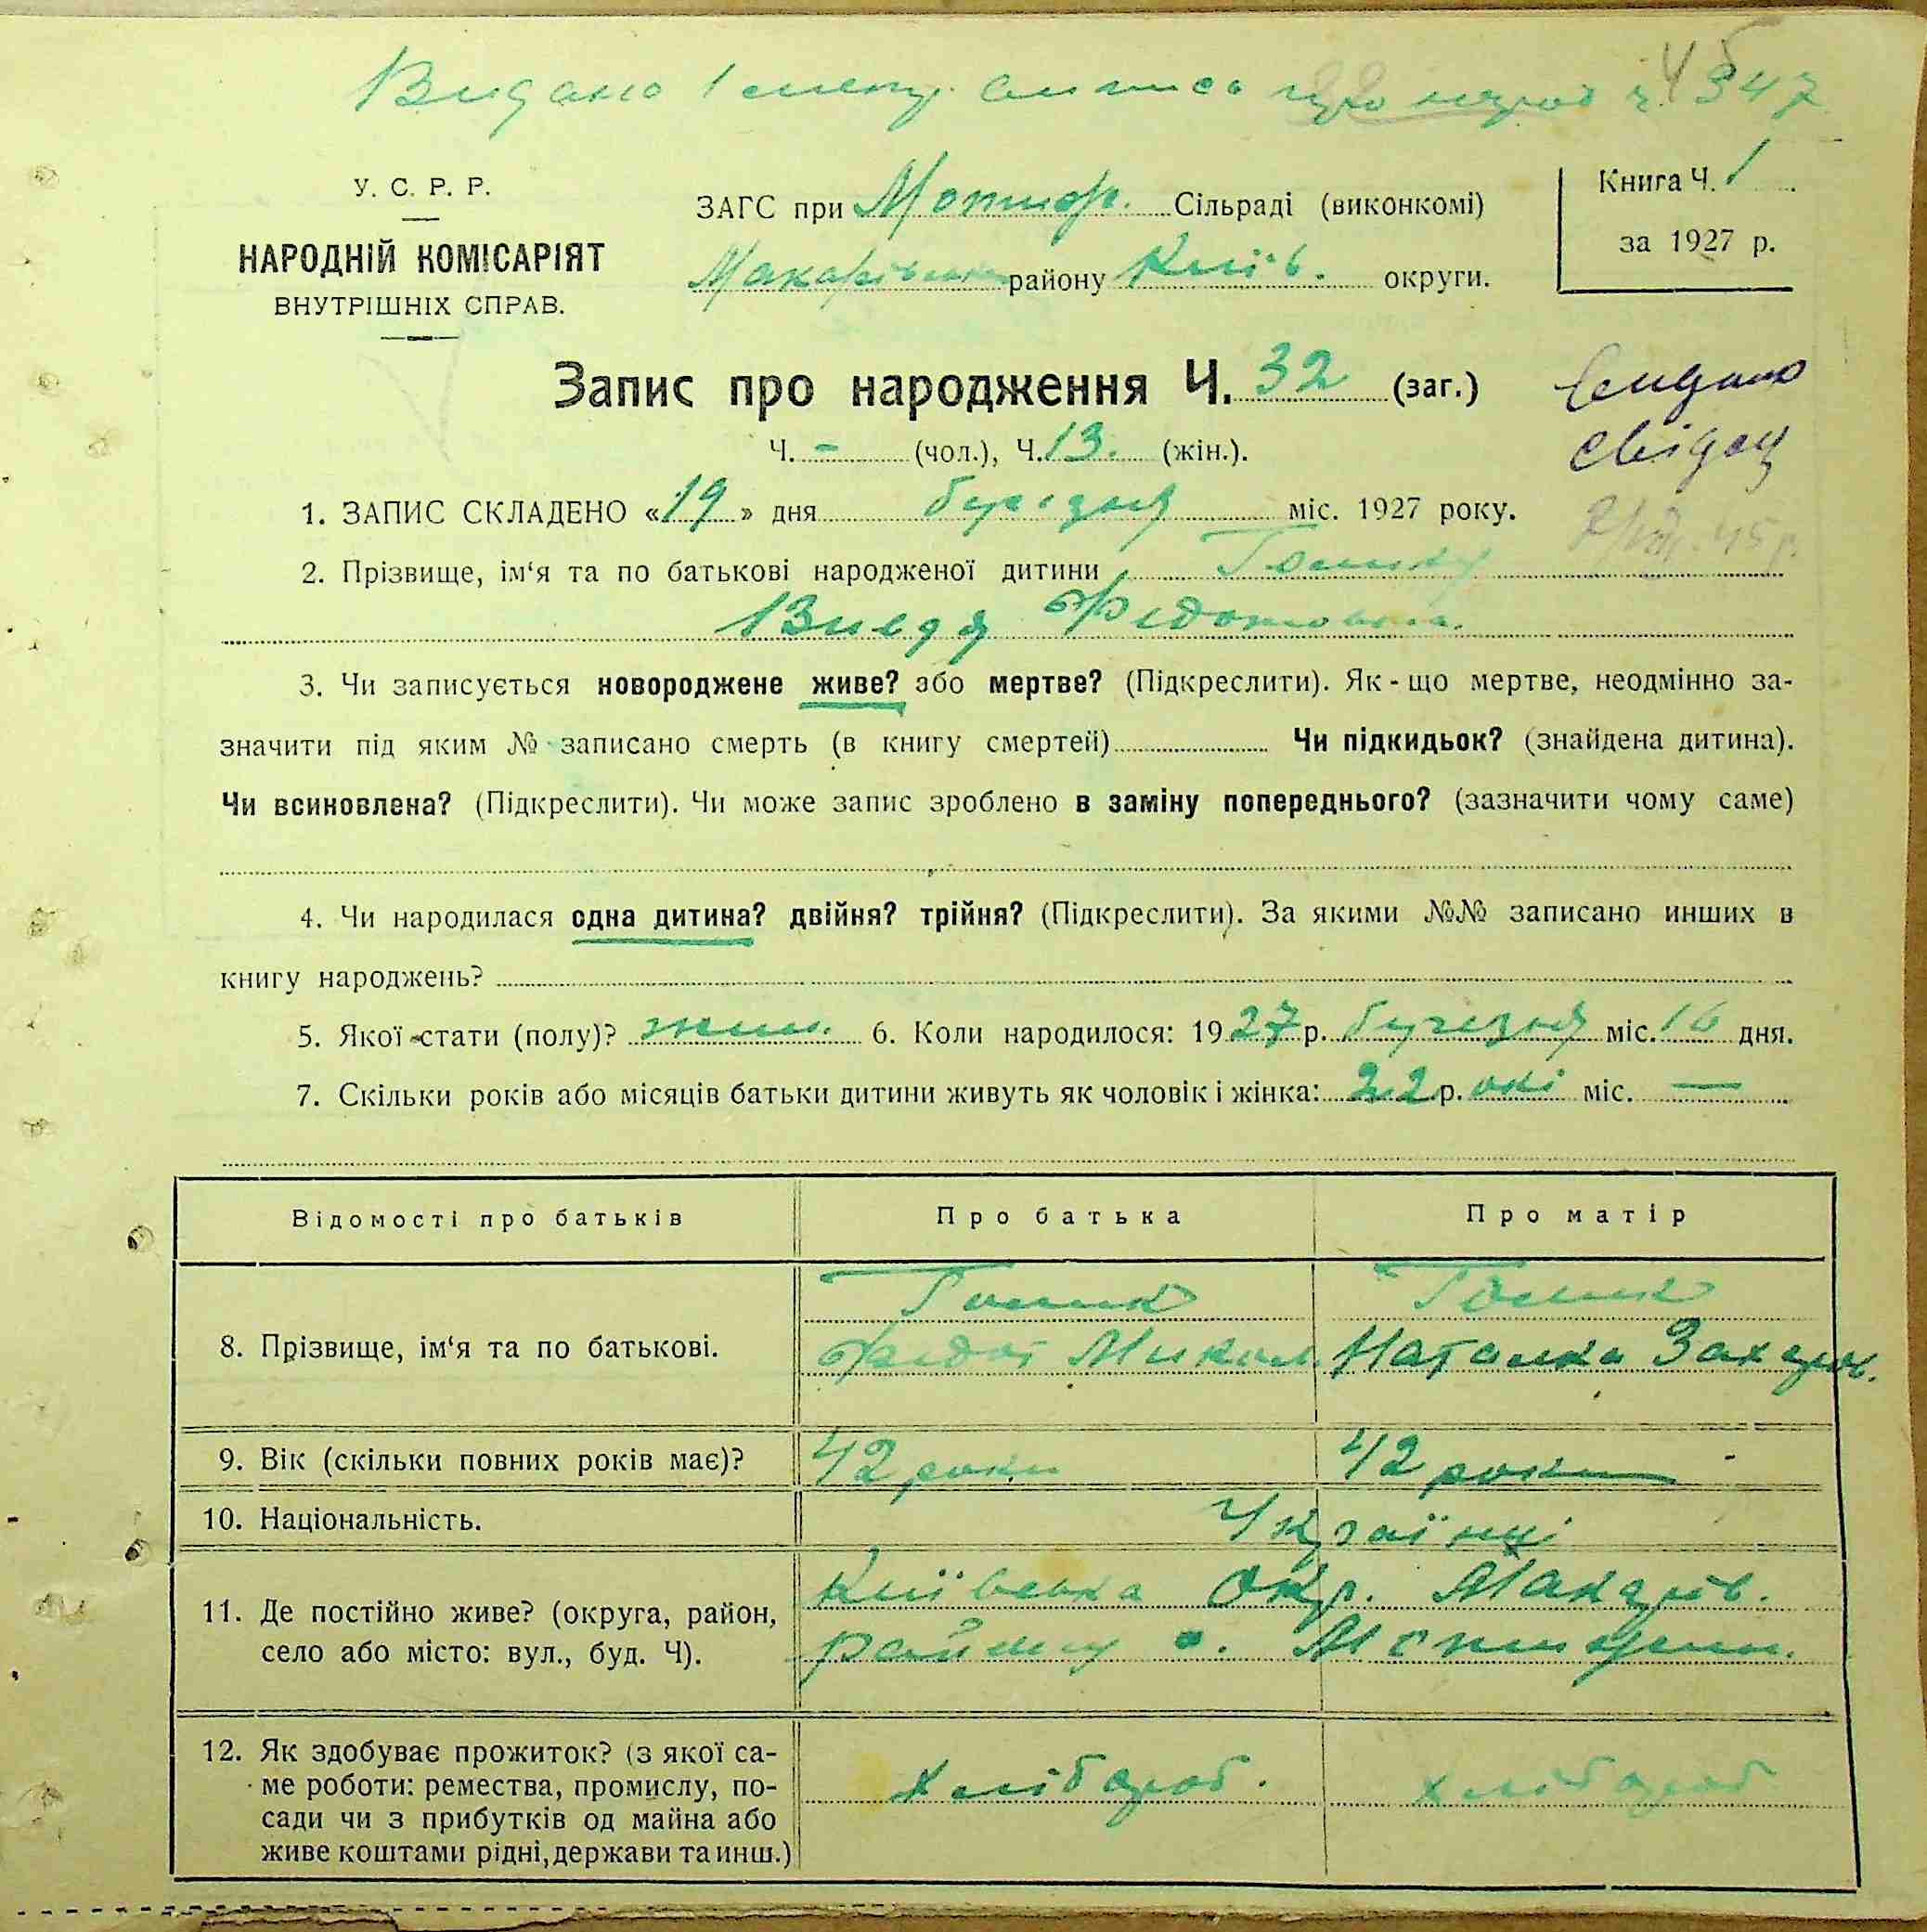 Видано
У. С. Р. Р.
НАРОДНІЙ КОМІСАРІЯТ
ВНУТРІШНІХ СПРАВ.
ЗАГС при Мотиж. Сільраді (виконкомі)
Макарівськ району Київ. округи.
Книга Ч. 1
за 1927 р.
Запис про народження Ч. 32 (заг.)
Ч. - (чол.), Ч. 13. (жін.).
Видано
свідоц
1. ЗАПИС СКЛАДЕНО «19» дня березня міс. 1927 року.
2. Прізвище, ім‘я та по батькові народженої дитини
Федотовна.
3. Чи записується новороджене живе? або мертве? (Підкреслити). Як-що мертве, неодмінно за-
значити під яким № записано смерть (в книгу смертей) Чи підкидьок? (знайдена дитина).
Чи всиновлена? (Підкреслити). Чи може запис зроблено в заміну попереднього? (зазначити чому саме)
4. Чи народилася одна дитина? двійня? трійня? (Підкреслити). За якими №№ записано инших в
книгу народжень?
5. Якої стати (полу)? жін. 6. Коли народилося: 1927 р. березня міс. 16 дня.
7. Скільки років або місяців батьки дитини живуть як чоловік і жінка: 22 р. окі міс. —
Відомості про батьків Про батька Про матір
8. Прізвище, ім‘я та по батькові.
Голик Голик
Федот Микол. Наталка Захаров.
9. Вік (скільки повних років має)? 42 роки 42 роки
10. Національність. Українці
11. Де постійно живе? (округа, район,
село або місто: вул., буд. Ч).
Київська окр. Макарів.
району с. Мотижин.
12. Як здобуває прожиток? (з якої са-
ме роботи: ремества, промислу, по-
сади чи з прибутків од майна або
живе коштами рідні, держави та инш.)
хлібороб. хлібороб